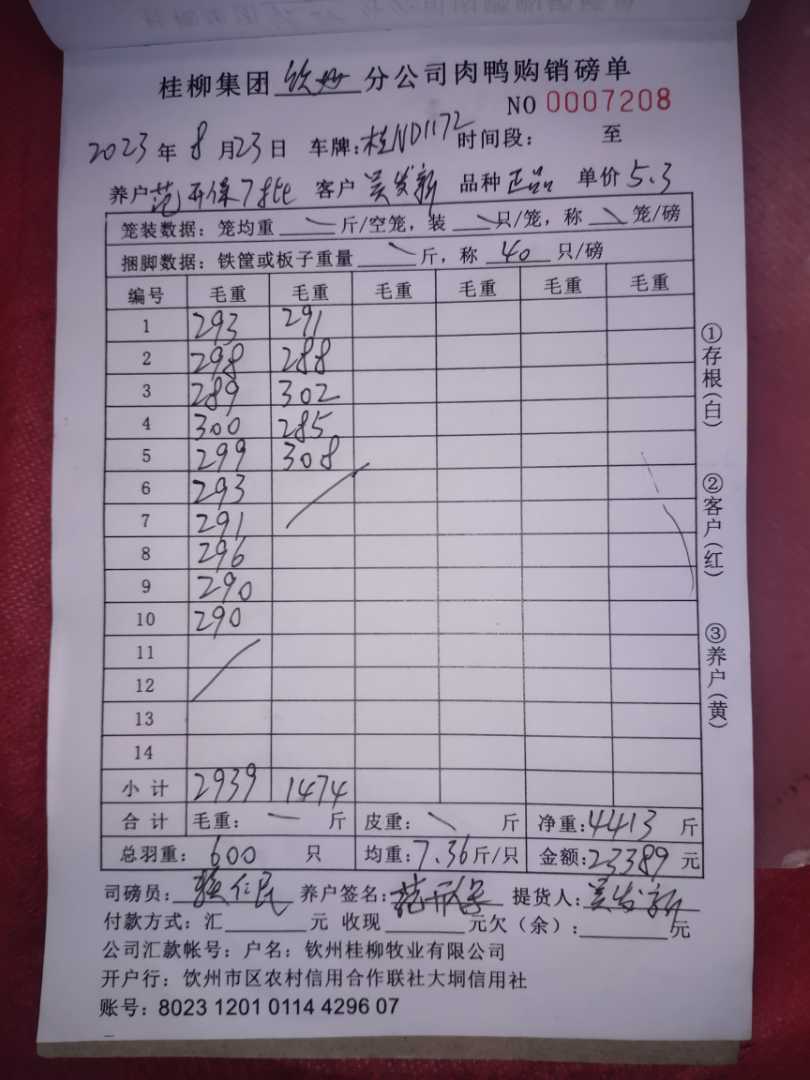 桂柳集团 钦州 分公司肉鸭购销磅单
NO 0007208
2023 年 8 月 23 日 车牌:桂ND1172 时间段: 至
养户 范开保 客户 吴发新 品种 正品 单价 5.3
笼装数据: 笼均重 斤/空笼, 装 只/笼, 称 笼/磅
捆脚数据: 铁筐或板子重量 斤, 称 40 只/磅
编号 毛重 毛重 毛重 毛重 毛重 毛重
1 293 291
2 298 288
3 289 302
4 300 285
5 299 308
6 293
7 291
8 296
9 290
10 290
11
12
13
14
小计 2939 1474
合计 毛重: 斤 皮重: 斤 净重:4413 斤
总羽重: 600 只 均重:7.36斤/只 金额:23389 元
司磅员: 仁民 养户签名: 范开保 提货人: 吴发新
付款方式: 汇 元 收现 元欠 (余): 元
公司汇款帐号: 户名: 钦州桂柳牧业有限公司
开户行: 钦州市区农村信用合作联社大垌信用社
账号: 8023 1201 0114 4296 07
①存根(白)
②客户(红)
③养户(黄)